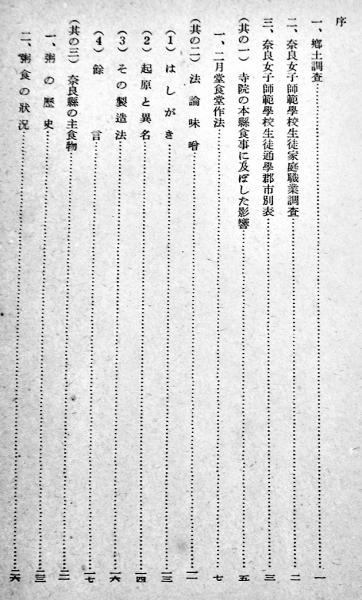 序
一、鄕土調査…………一
二、奈良女子師範學校生徒家庭職業調査…………二
三、奈良女子師範學校生徒通學郡市別表…………三
(其の一) 寺院の本縣食事に及ぼした影響…………五
一、二月堂食堂作法…………七
(其の二) 法論味噌…………一一
(1) はしがき…………一三
(2) 起原と異名…………一四
(3) その製造法…………一六
(4) 餘言…………一七
(其の三) 奈良縣の主食物…………二一
一、粥の歷史…………二三
二、粥食の狀況…………二六